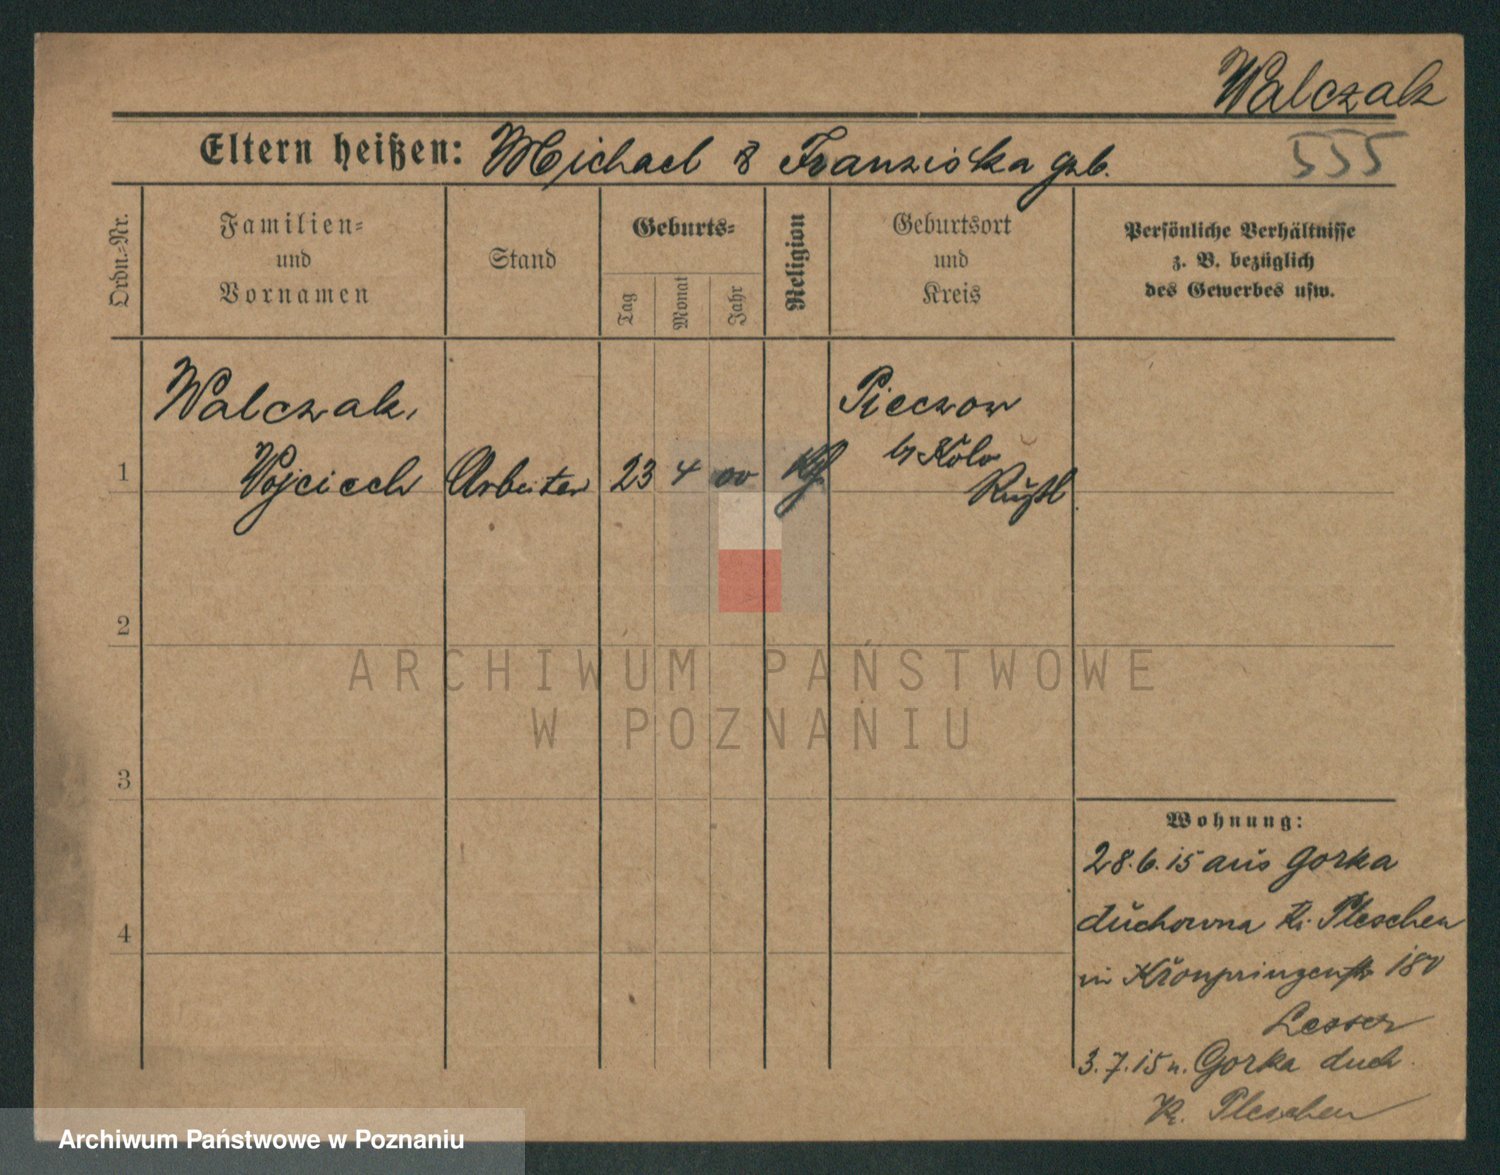 Walczak
Eltern heißen: Michael & Franziska geb.
555
Ordn.-Nr.
Familien-
und
Vornamen
Stand
Geburts-
Tag
Monat
Jahr
Religion
Geburtsort
und
Kreis
Persönliche Verhältnisse
z. B. bezüglich
des Gewerbes usw.
1
Walczak,
Wojciech
Arbeiter
23
4
00
Kth.
Pieczow
b/ Kolo
Rußl
2
3
4
Wohnung:
28.6.15 aus Gorka
duchowna Kr. Pleschen
in Kronprinzenstr 180
Lesser
3.7.15 n. Gorka duch.
Kr. Pleschen
ARCHIWUM PAŃSTWOWE
W POZNANIU
Archiwum Państwowe w Poznaniu